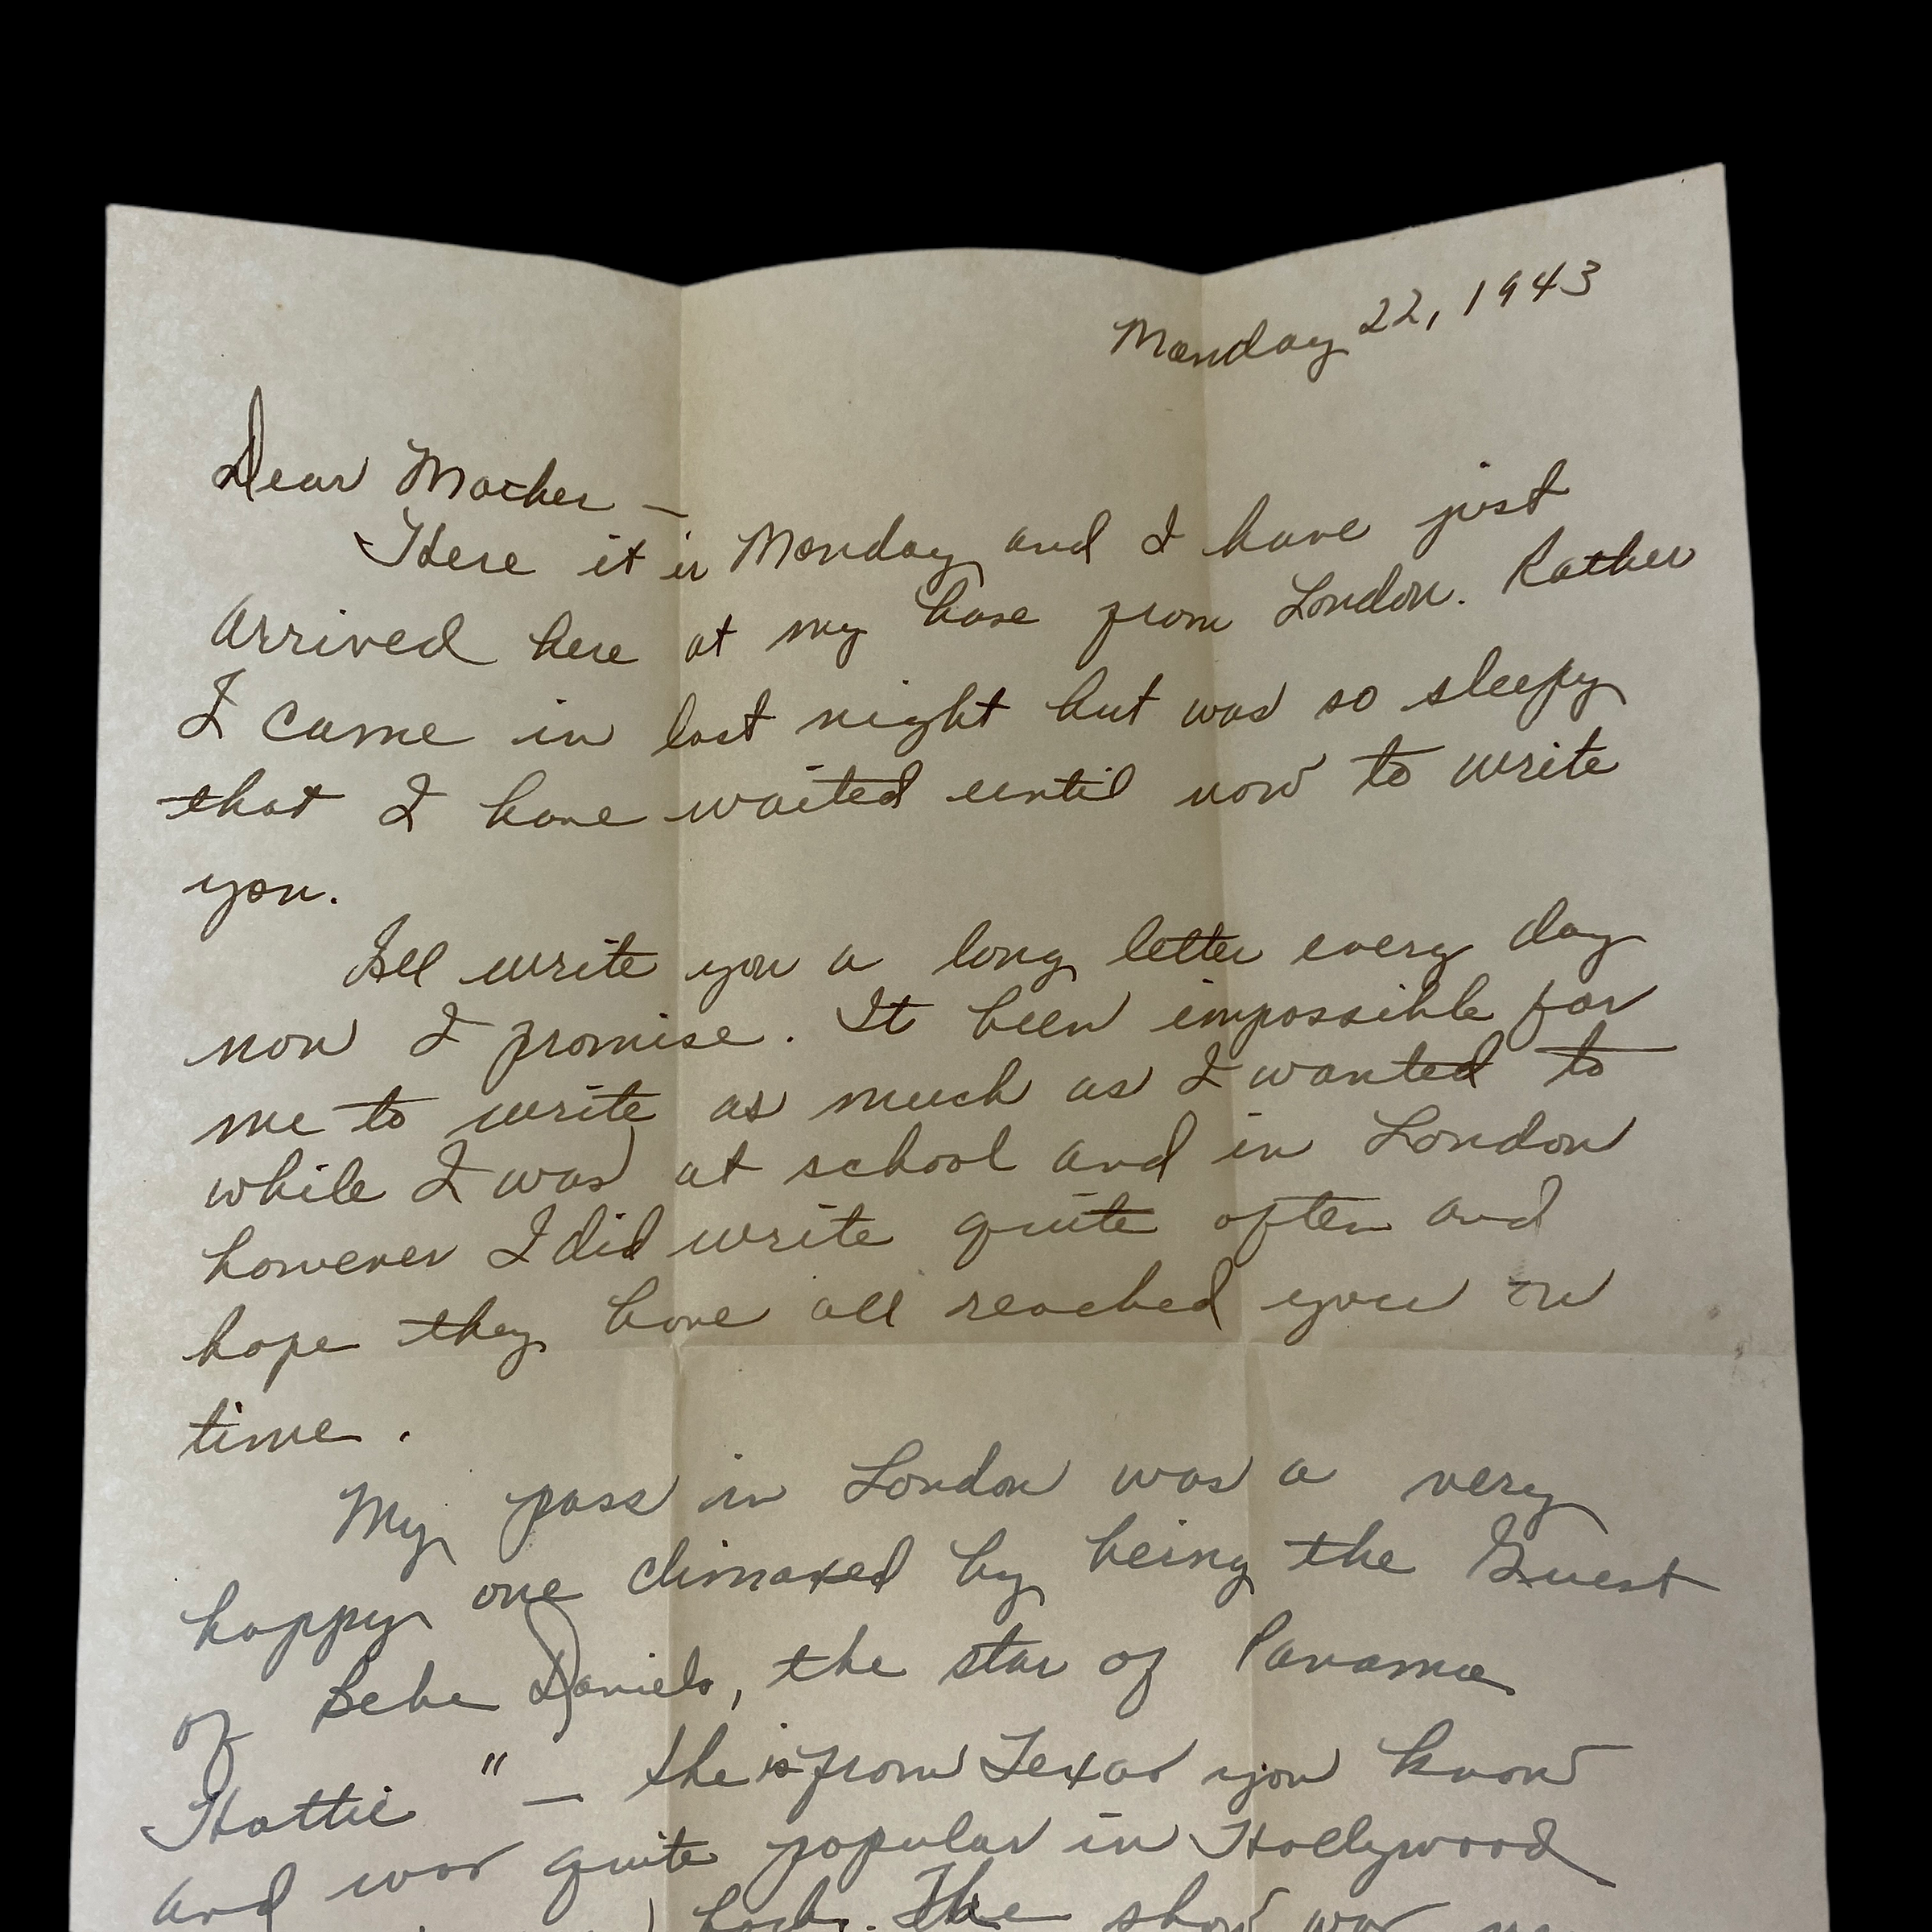 Monday 22, 1943
Dear Mother –
Here it is Monday and I have just
arrived here at my base from London. Rather
I came in last night but was so sleepy
that I have waited until now to write
you.
I'll write you a long letter every day
now I promise. It been impossible for
me to write as much as I wanted to
while I was at school and in London
however I did write quite often and
hope they have all reached you in
time.
My pass in London was a very
happy one climaxed by being the Guest
of Bebe Daniels, the star of Panama
Hattie" — She is from Texas you know
and was quite popular in Hollywood
back. The show was